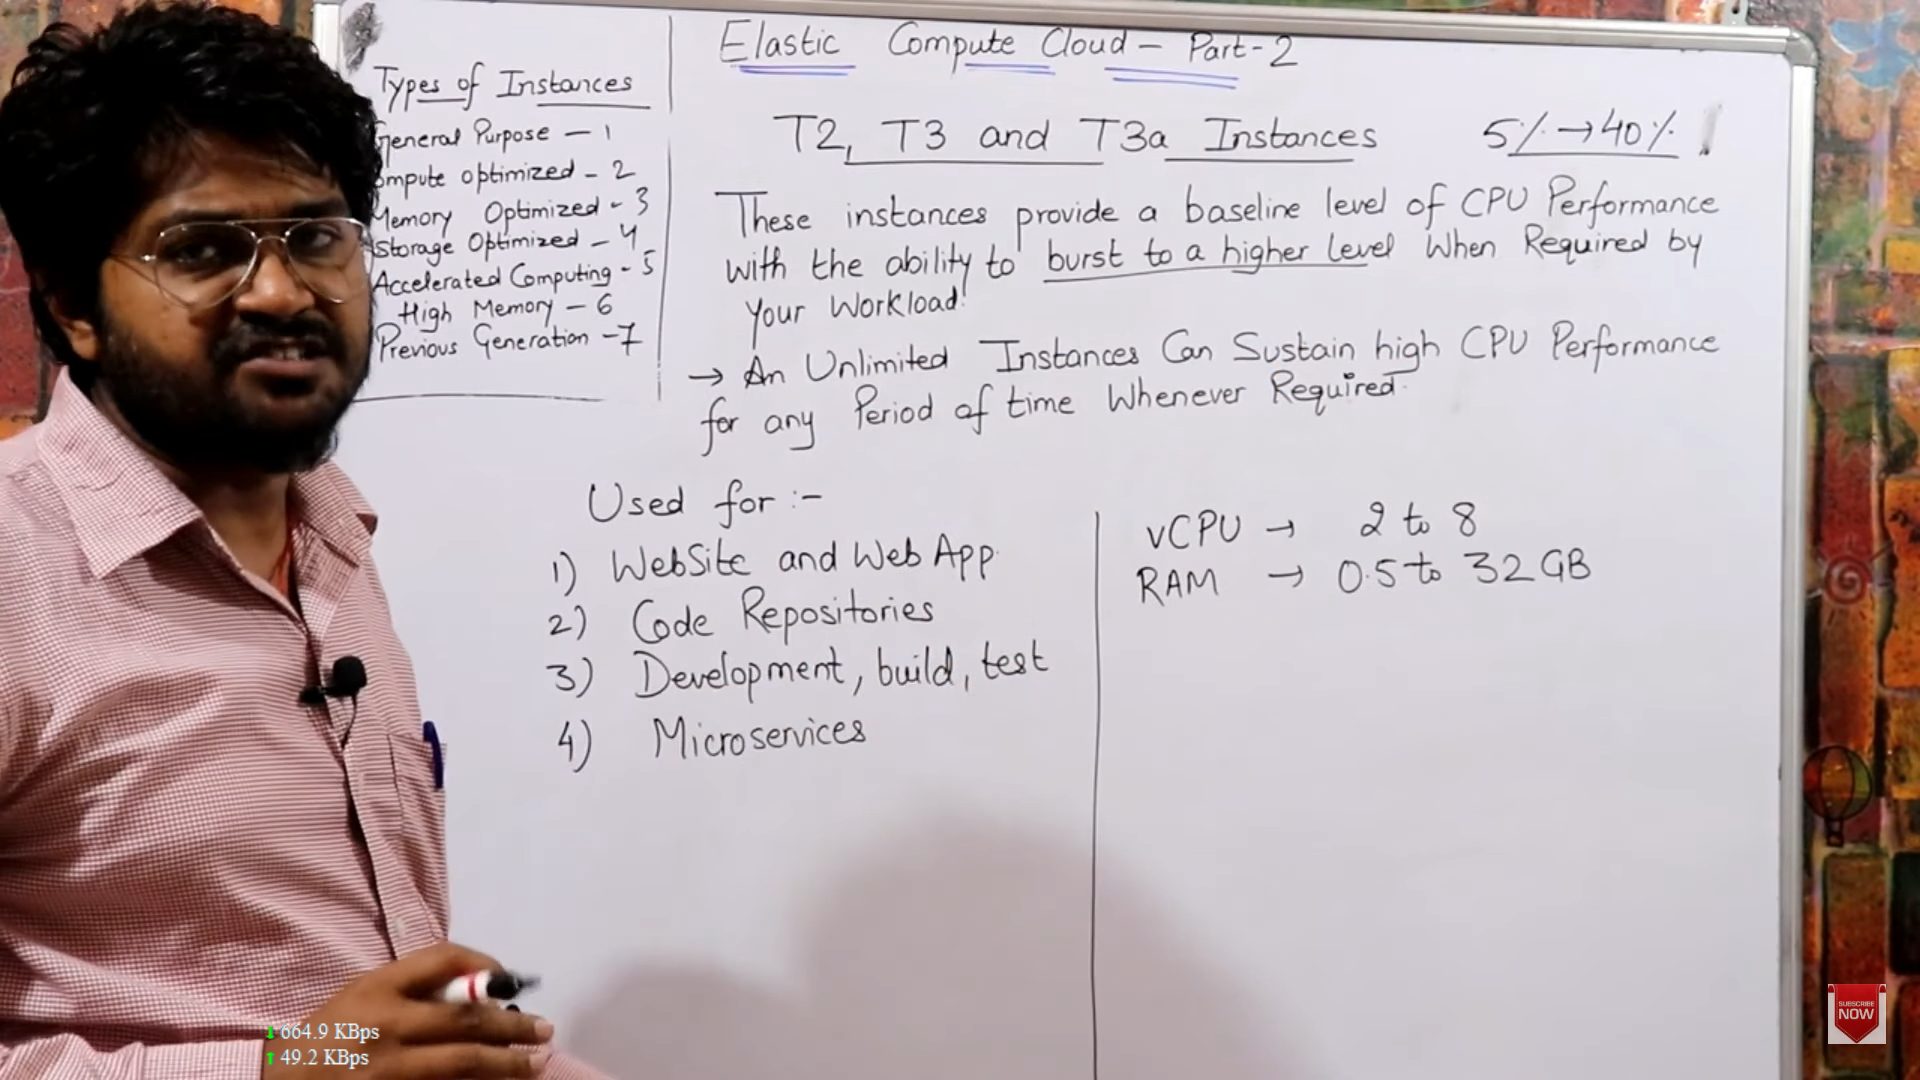 Elastic Compute Cloud - Part-2
Types of Instances
General Purpose - 1
ompute optimized - 2
Memory Optimized - 3
Storage Optimized - 4
Accelerated Computing - 5
High Memory - 6
Previous Generation - 7
T2, T3 and T3a Instances
5% → 40%
These instances provide a baseline level of CPU Performance
with the ability to burst to a higher level When Required by
Your Workload.
→ An Unlimited Instances Can Sustain high CPU Performance
for any Period of time Whenever Required.
Used for :-
1) WebSite and Web App
2) Code Repositories
3) Development, build, test
4) Microservices
vCPU → 2 to 8
RAM → 0.5 to 32 GB
664.9 KBps
49.2 KBps
SUBSCRIBE
NOW